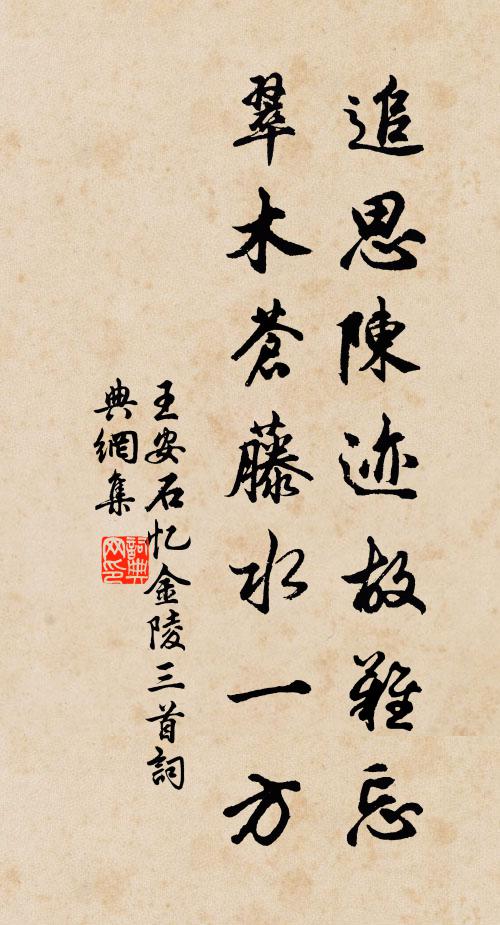 追思陳迹故難忘
翠木蒼藤水一方
王安石忆金陵三首詞
典網集
詞典網印